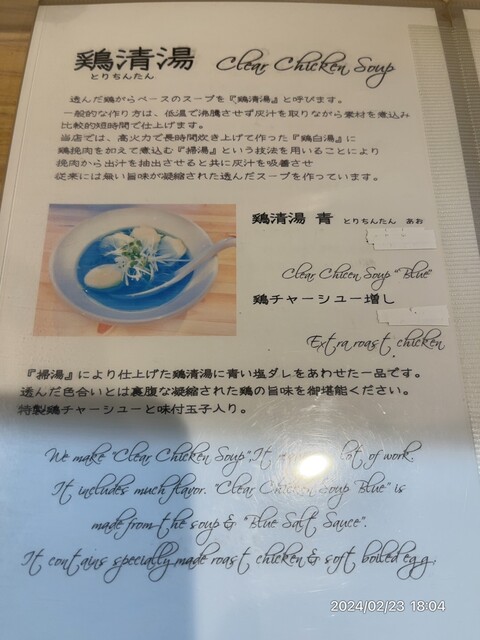 鶏清湯 Clear Chicken Soup
とりちんたん
透んだ鶏がらベースのスープを『鶏清湯』と呼びます。
一般的な作り方は、低温で沸騰させず灰汁を取りながら素材を煮込み
比較的短時間で仕上げます。
当店では、高火力で長時間炊き上げて作った『鶏白湯』に
鶏挽肉を加えて煮込む『掃湯』という技法を用いることにより
挽肉から出汁を抽出させると共に灰汁を吸着させ
従来には無い旨味が凝縮された透んだスープを作っています。
鶏清湯 青 とりちんたん あお
Clear Chicen Soup "Blue"
鶏チャーシュー増し
Extra roast chicken
『掃湯』により仕上げた鶏清湯に青い塩ダレをあわせた一品です。
透んだ色合いとは裏腹な凝縮された鶏の旨味を御堪能ください。
特製鶏チャーシューと味付玉子入り。
We make "Clear Chicken Soup",It lot of work.
It includes much flavor. "Clear Chicken Soup Blue" is
made from the soup & "Blue Salt Sauce".
It contains specially made roast chicken & soft boiled egg.
2024/02/23 18:04